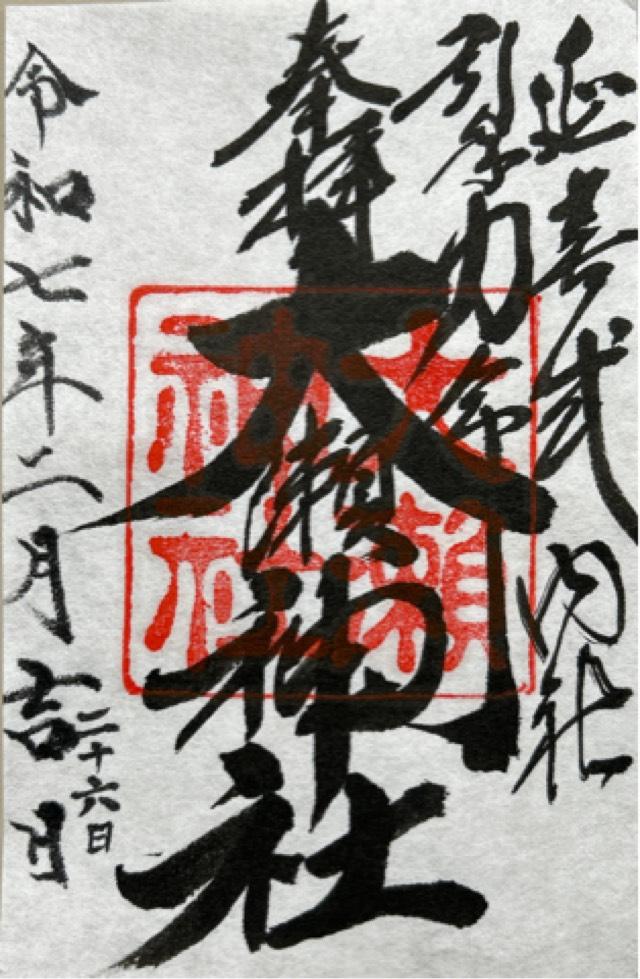 延喜式内社
引手力命
奉拝
大瀬神社
大瀬
神社
令和七年二月吉日
二十六日